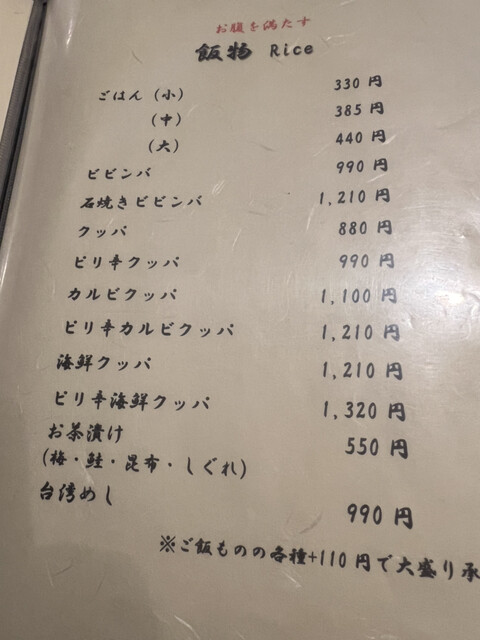 お腹を満たす
飯物 Rice
ごはん（小） 330 円
（中） 385 円
（大） 440 円
ビビンバ 990 円
石焼きビビンバ 1,210 円
クッパ 880 円
ピリ辛クッパ 990 円
カルビクッパ 1,100 円
ピリ辛カルビクッパ 1,210 円
海鮮クッパ 1,210 円
ピリ辛海鮮クッパ 1,320 円
お茶漬け 550 円
（梅・鮭・昆布・しぐれ）
台湾めし 990 円
※ご飯ものの各種+110 円で大盛り承